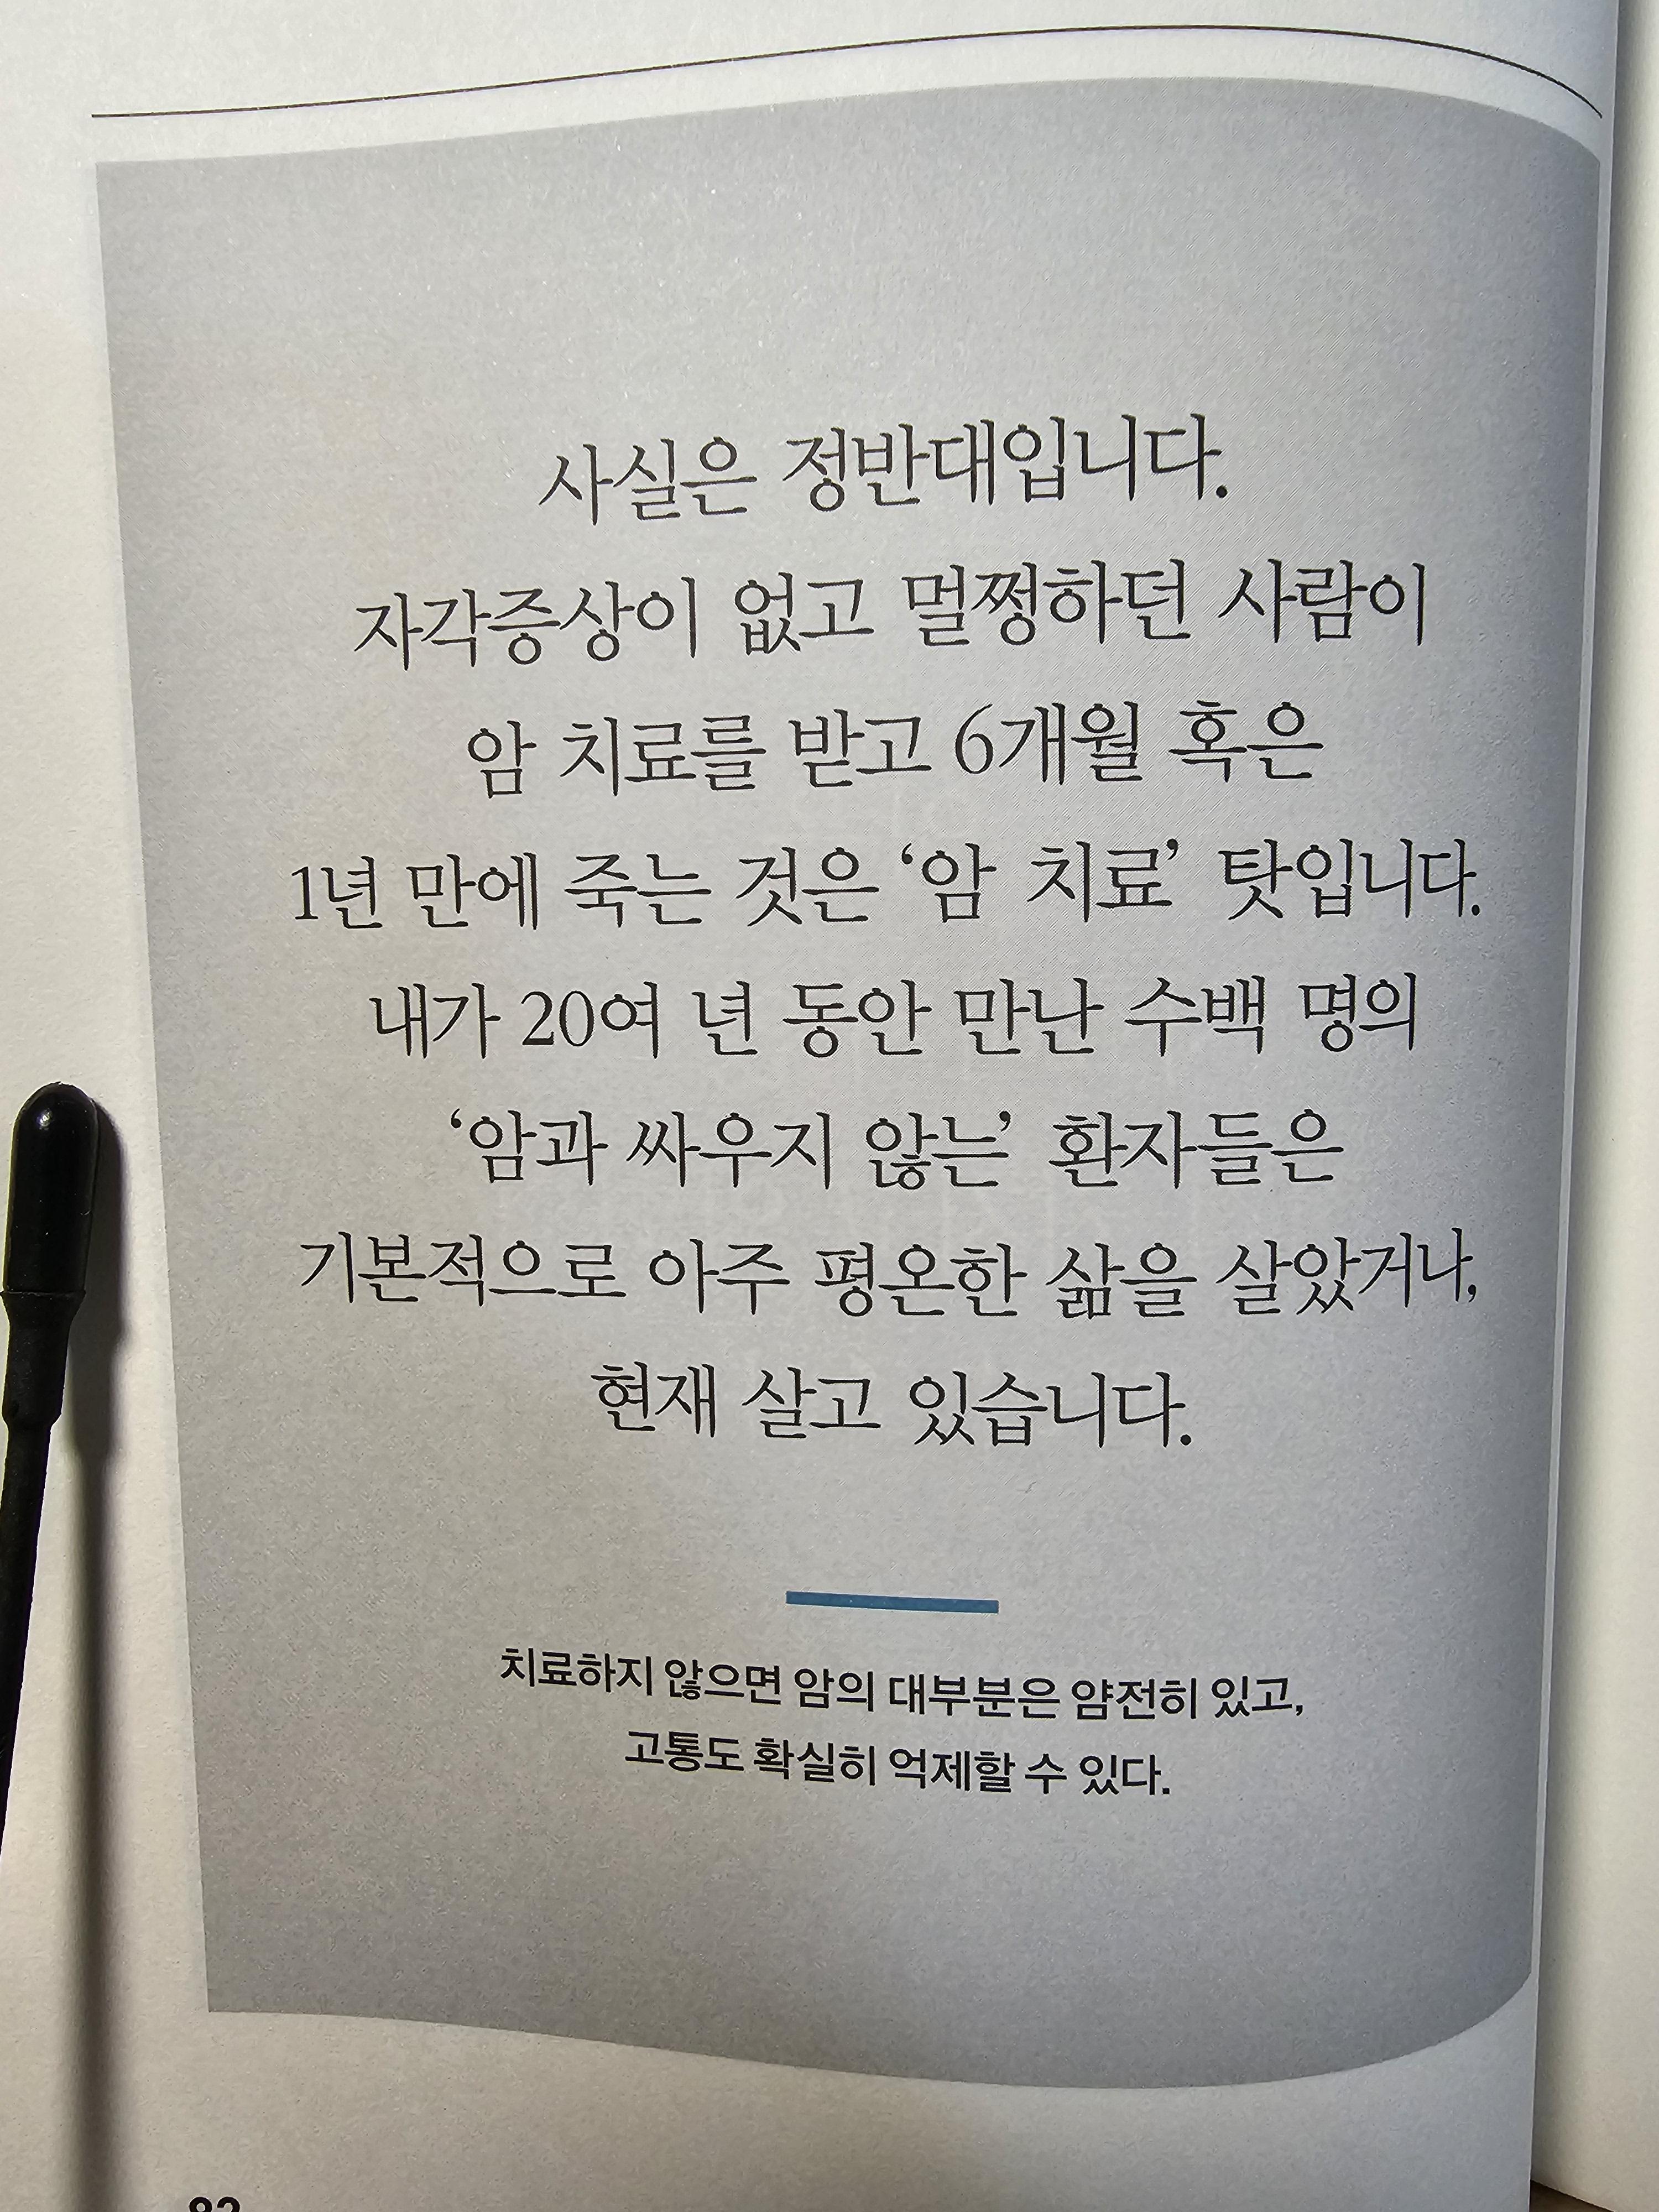 사실은 정반대입니다.
자각증상이 없고 멀쩡하던 사람이
암 치료를 받고 6개월 혹은
1년 만에 죽는 것은 ‘암 치료’ 탓입니다.
내가 20여 년 동안 만난 수백 명의
‘암과 싸우지 않는’ 환자들은
기본적으로 아주 평온한 삶을 살았거나,
현재 살고 있습니다.
치료하지 않으면 암의 대부분은 얌전히 있고,
고통도 확실히 억제할 수 있다.